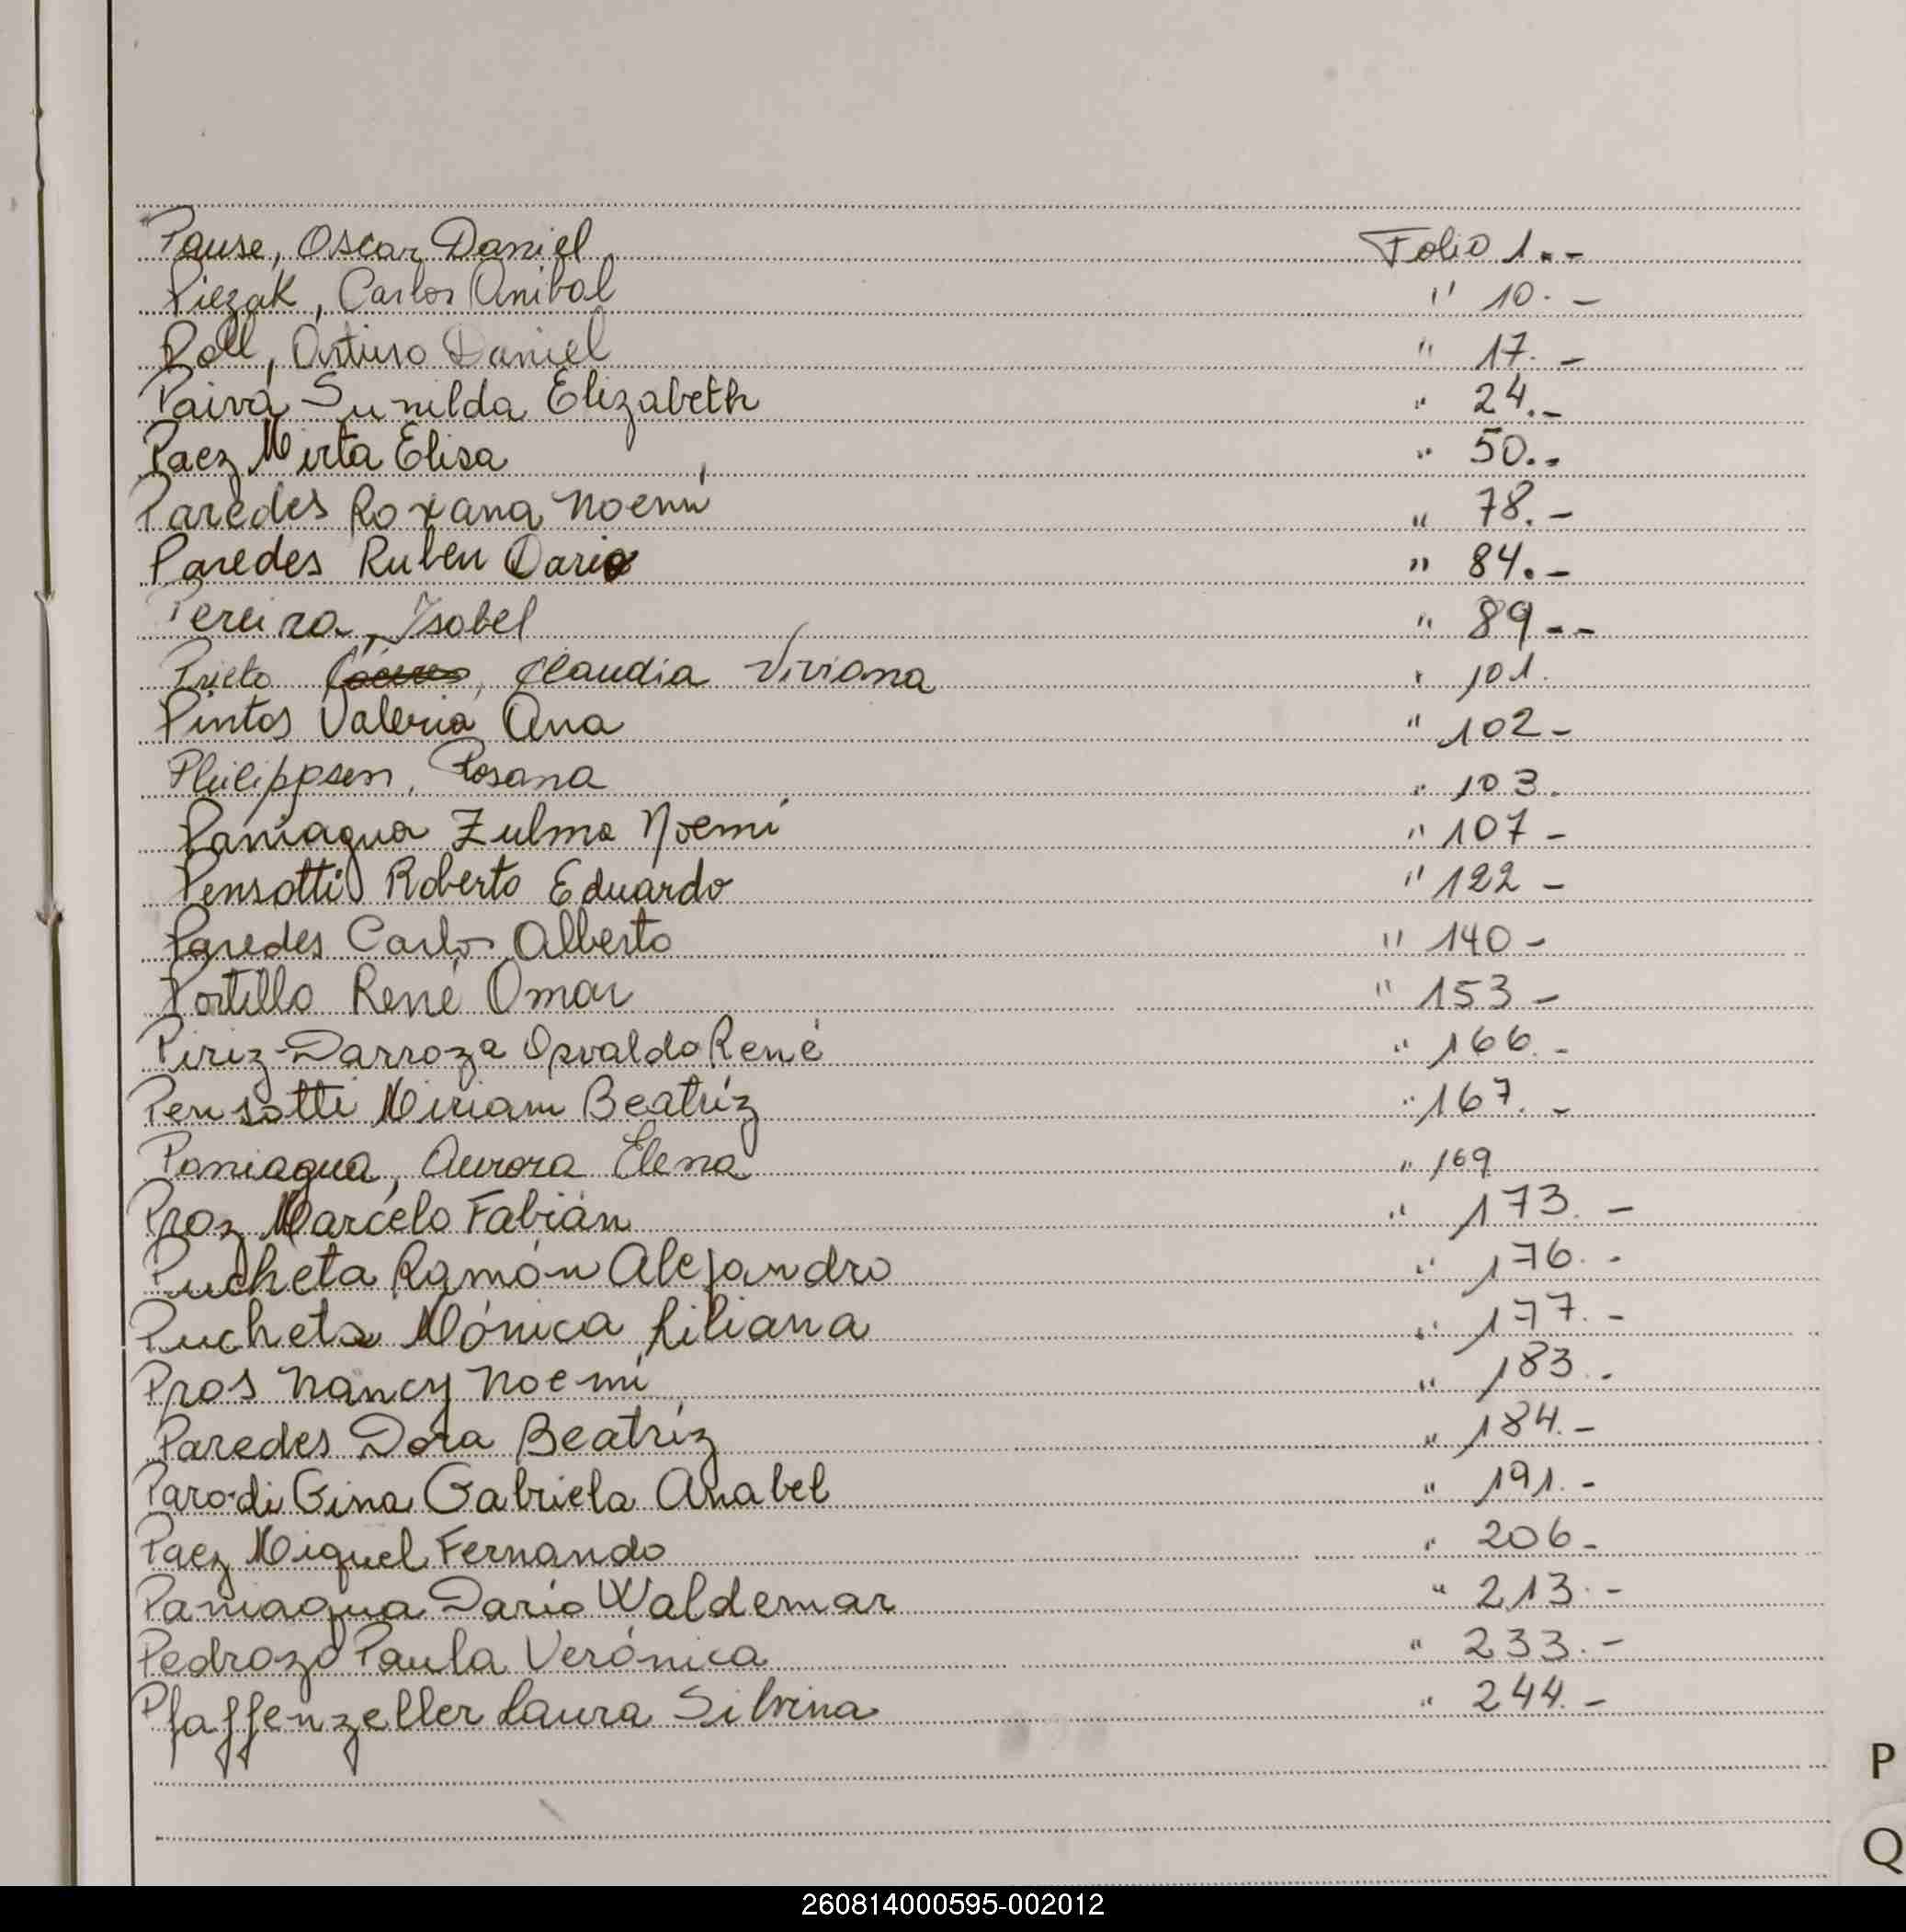 Pause, Oscar Daniel Folio 1.-
Piezak, Carlos Anibal " 10.-
Roll, Arturo Daniel " 17.-
Paiva Sunilda Elizabeth " 24.-
Paez Mirta Elisa " 50.-
Paredes Roxana Noemí " 78.-
Paredes Ruben Dario " 84.-
Pereira, Isabel " 89--
Prieto Claudia Viviana " 101.
Pintos Valeria Ana " 102-
Philippsen, Rosana " 103.
Paniagua Zulma Noemí " 107-
Pensotti Roberto Eduardo " 122-
Paredes Carlos Alberto " 140-
Portillo René Omar " 153-
Piriz-Darroza Osvaldo René " 166.-
Pensotti Miriam Beatríz " 167.-
Paniagua, Aurora Elena " 169
Proz Marcelo Fabián " 173.-
Pucheta Ramón Alejandro " 176.-
Pucheta Mónica Liliana " 177.-
Pros Nancy Noemí " 183.-
Paredes Dora Beatríz " 184.-
Parodi Gina Gabriela Anabel " 191.-
Paez Miguel Fernando " 206-
Paniagua Darío Waldemar " 213.-
Pedrozo Paula Verónica " 233.-
Pfaffenzeller Laura Silvina " 244.-
P
Q
260814000595-002012